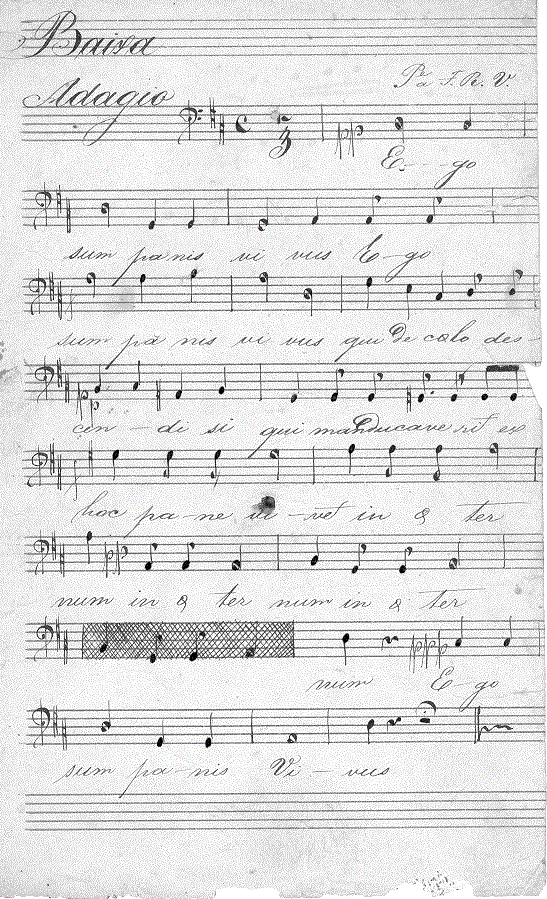 Baixa
Adagio
Pa J. R. V.
C 5 3 pp
E - - - go
sum panis vi vus E - go
sum pa nis vi vus qui De cælo des -
pp
cen - di si qui manducave rit ex
hoc pa - ne vi - vet in æ ter
pp
num in æ ter num in æ ter
ppp
num E - go
sum pa - nis Vi - vus